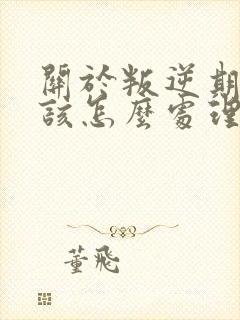 關於叛逆期
該怎麼處理
董飛